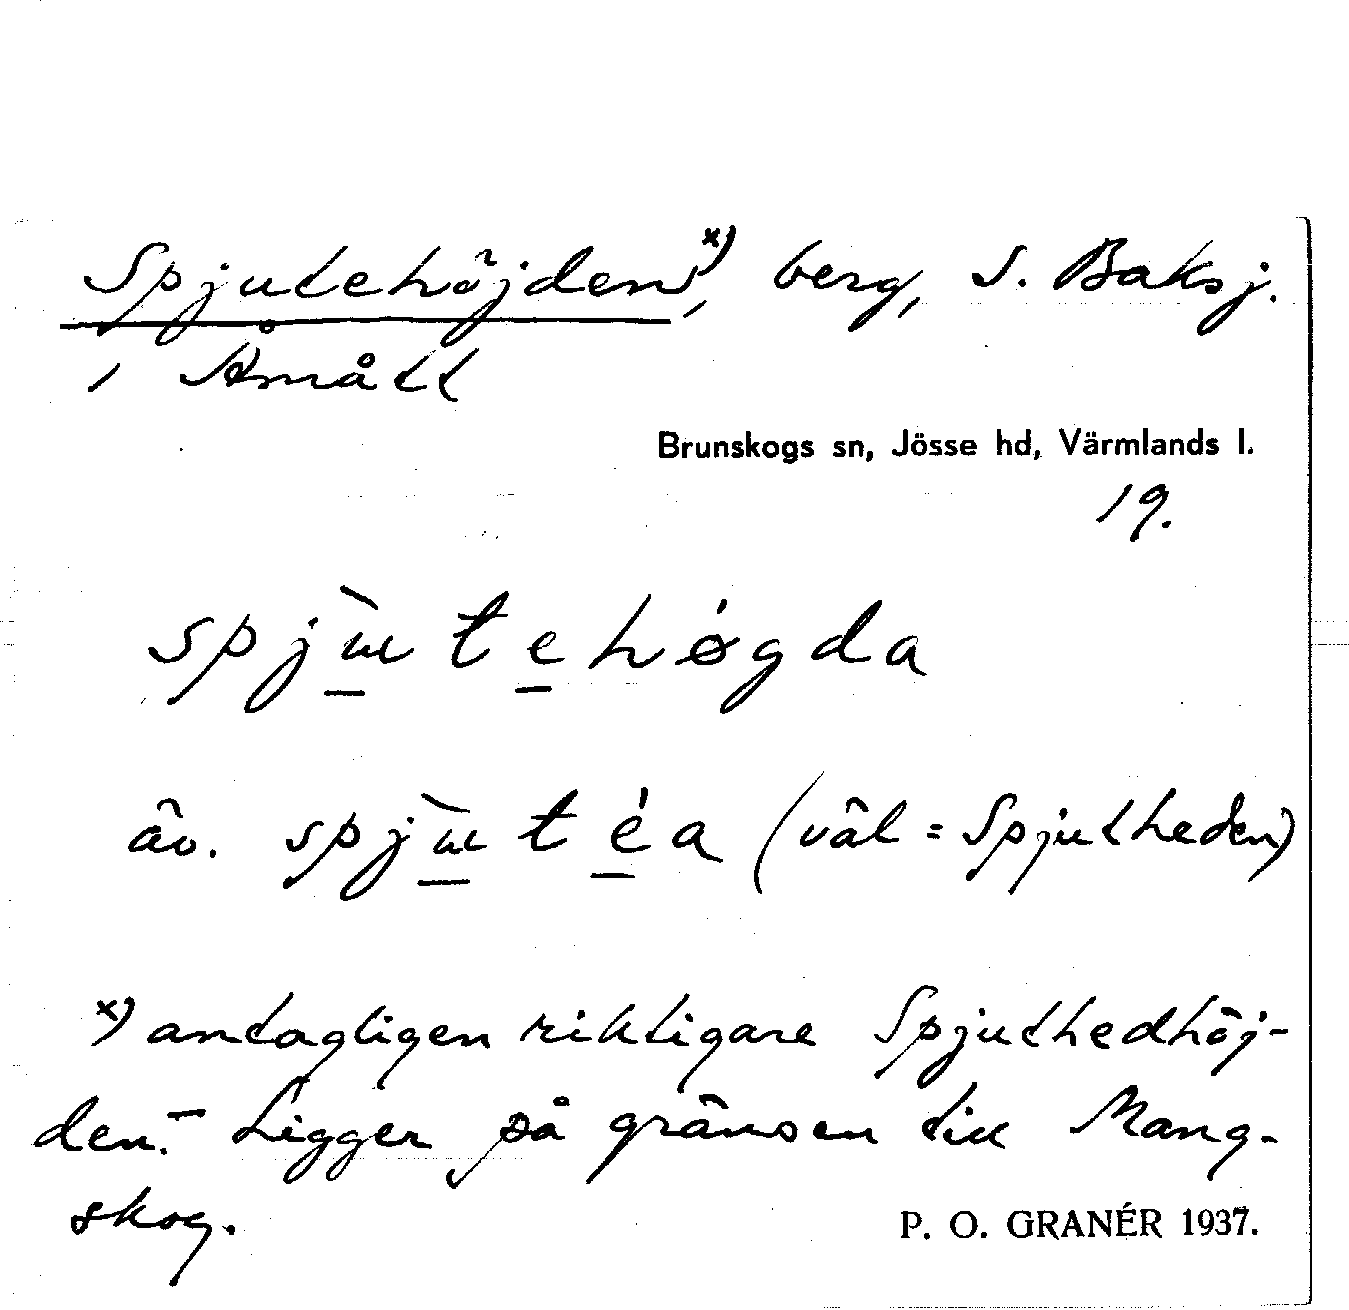 Spjutehöjden,ˣ⁾ berg, S. Baksj.
i Åmått
Brunskogs sn, Jösse hd, Värmlands l.
19.
spjùtehǿgda
äv. spjùtéa (väl = Spjutheden)
ˣ⁾ antagligen riktigare Spjuthedhöj-
den. – Ligger på gränsen till Mang-
skog.
P. O. GRANÉR 1937.